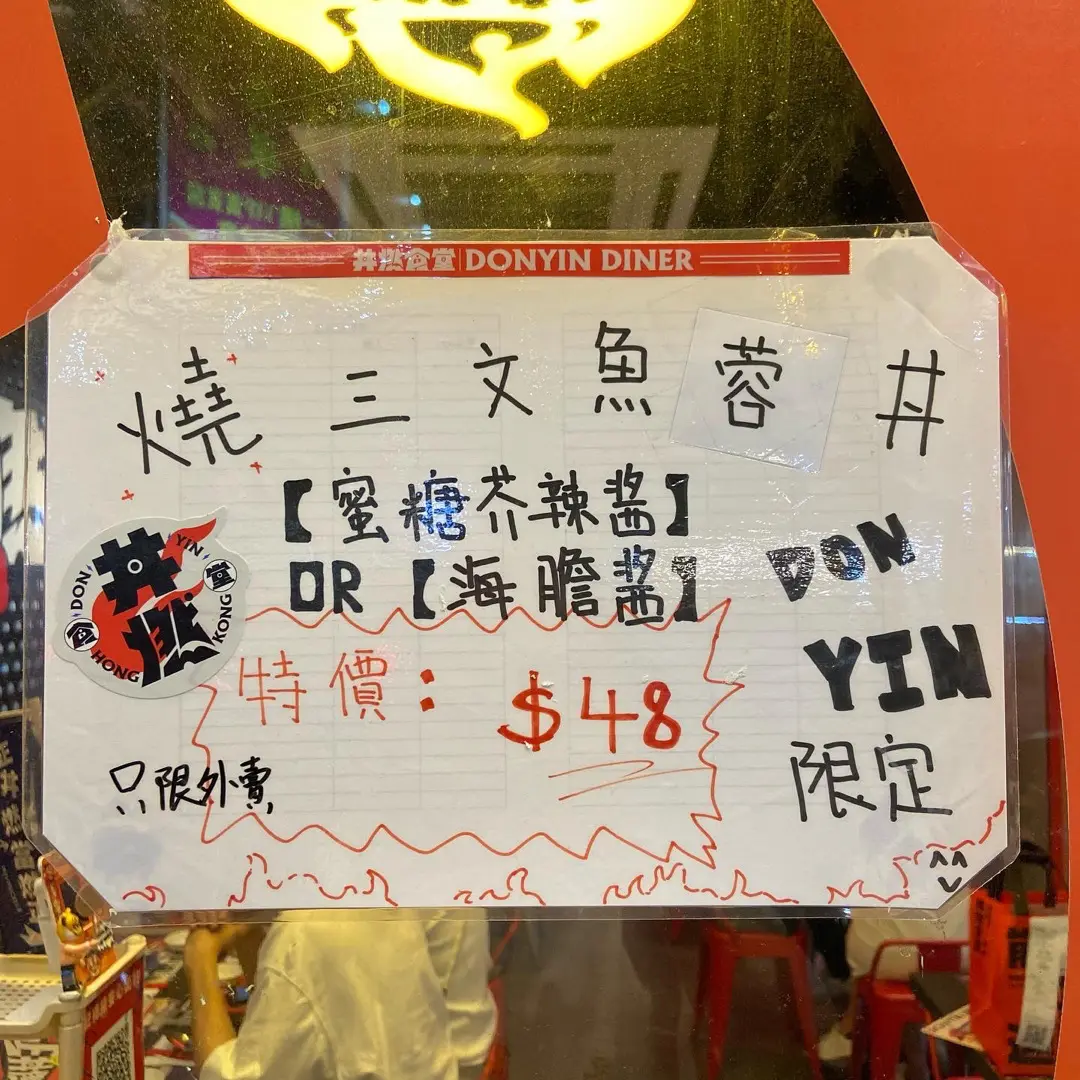 丼燃食堂 DONYIN DINER
燒三文魚蓉丼
【蜜糖芥辣酱】
OR【海膽酱】
DON
YIN
限定
特價：$48
只限外賣
DON YIN
丼燃
食堂
HONG KONG